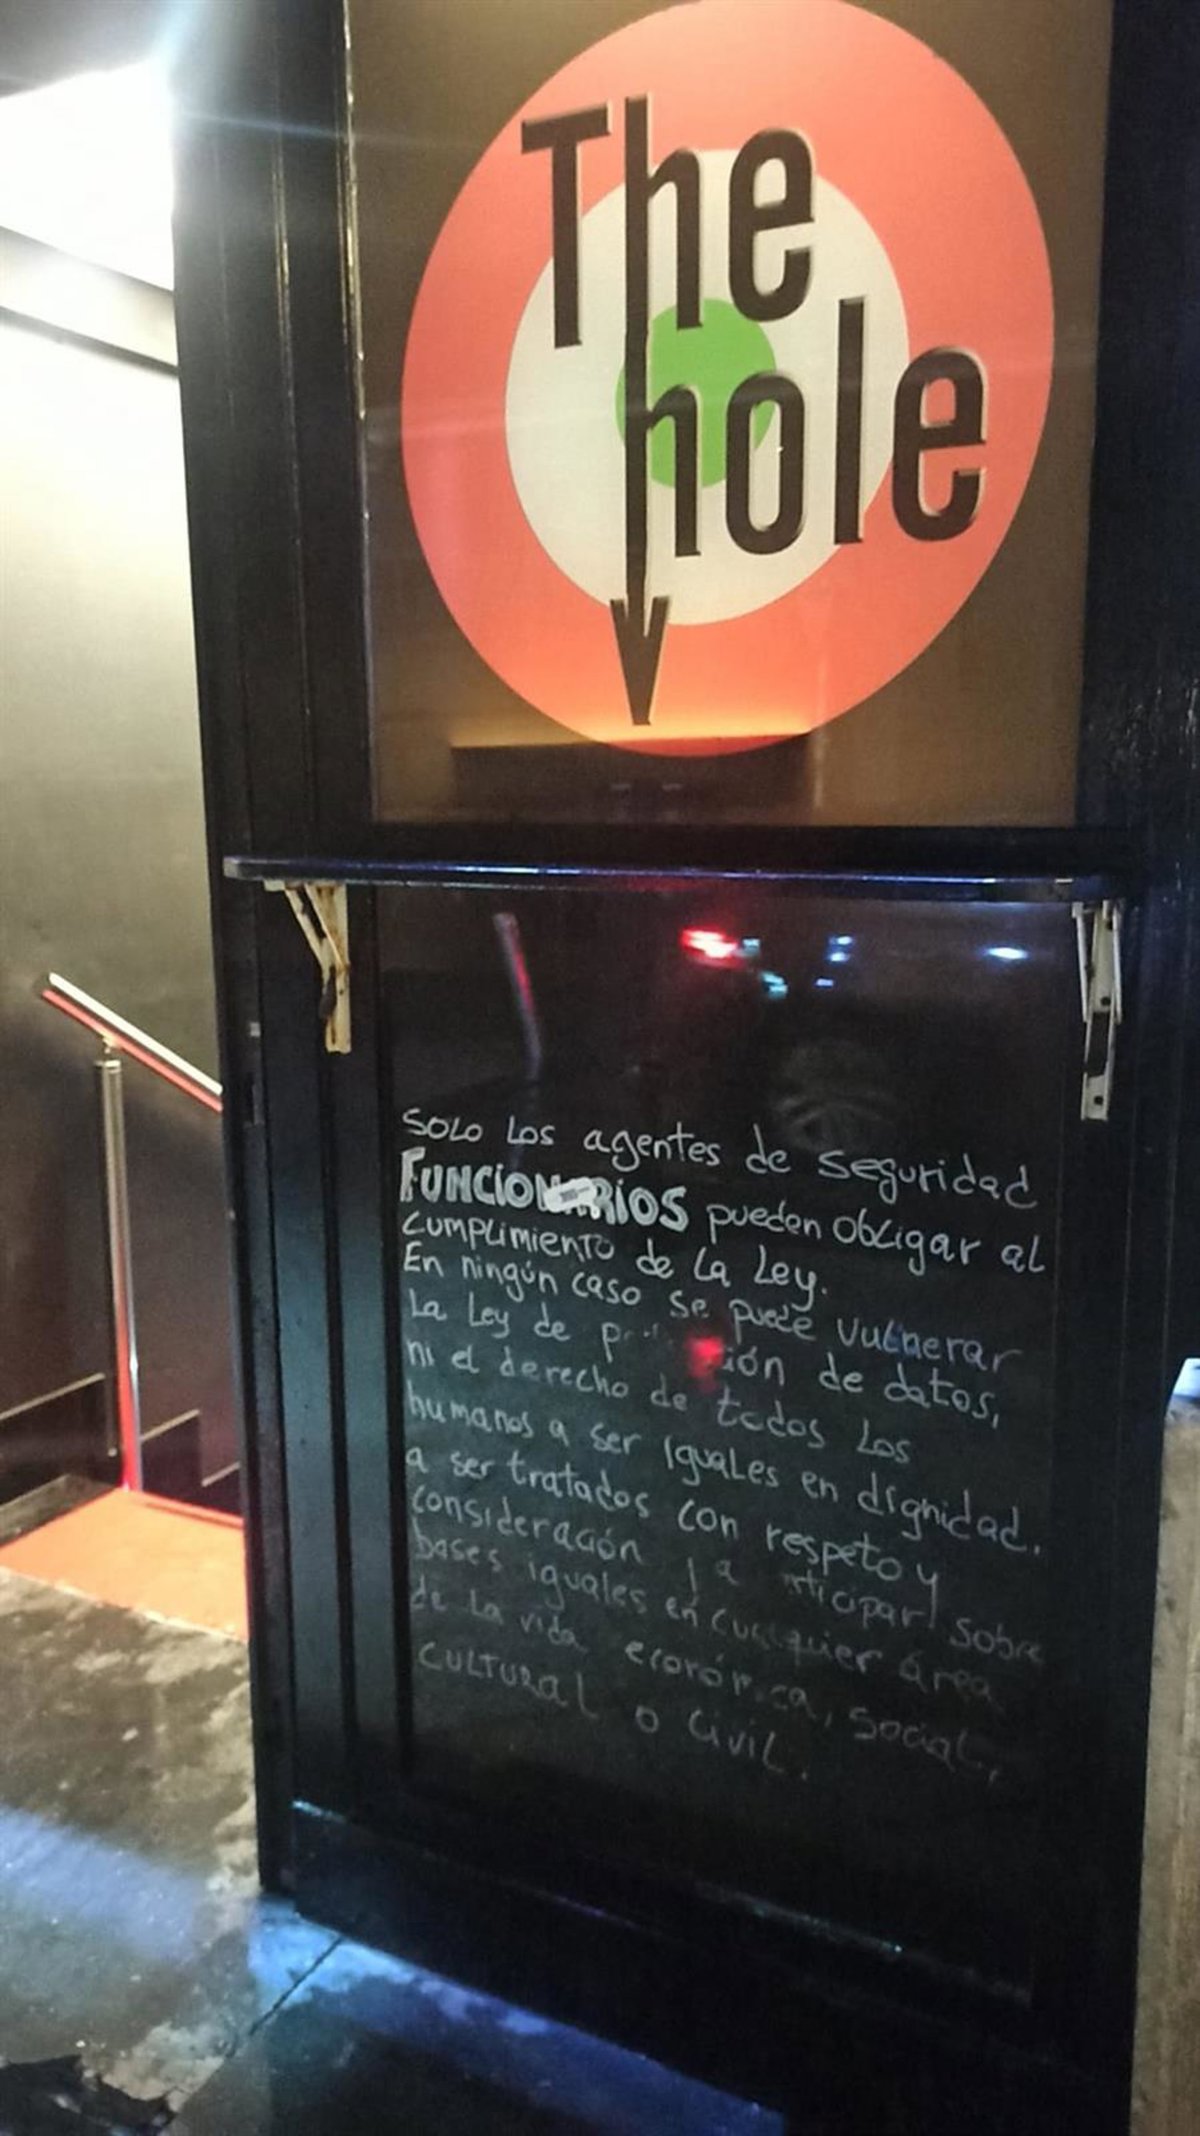 The
hole
SOLO LOS agentes de seguridad
FUNCIONARIOS pueden obligar al
cumplimiento de La Ley.
En ningún caso se puede vulnerar
La Ley de datos,
ni el derecho de todos Los
humanos a ser iguales en dignidad.
a ser tratados con respeto y
consideración y a sobre
bases iguales en cualquier área
de La vida económica, social,
CULTURAL o Civil.